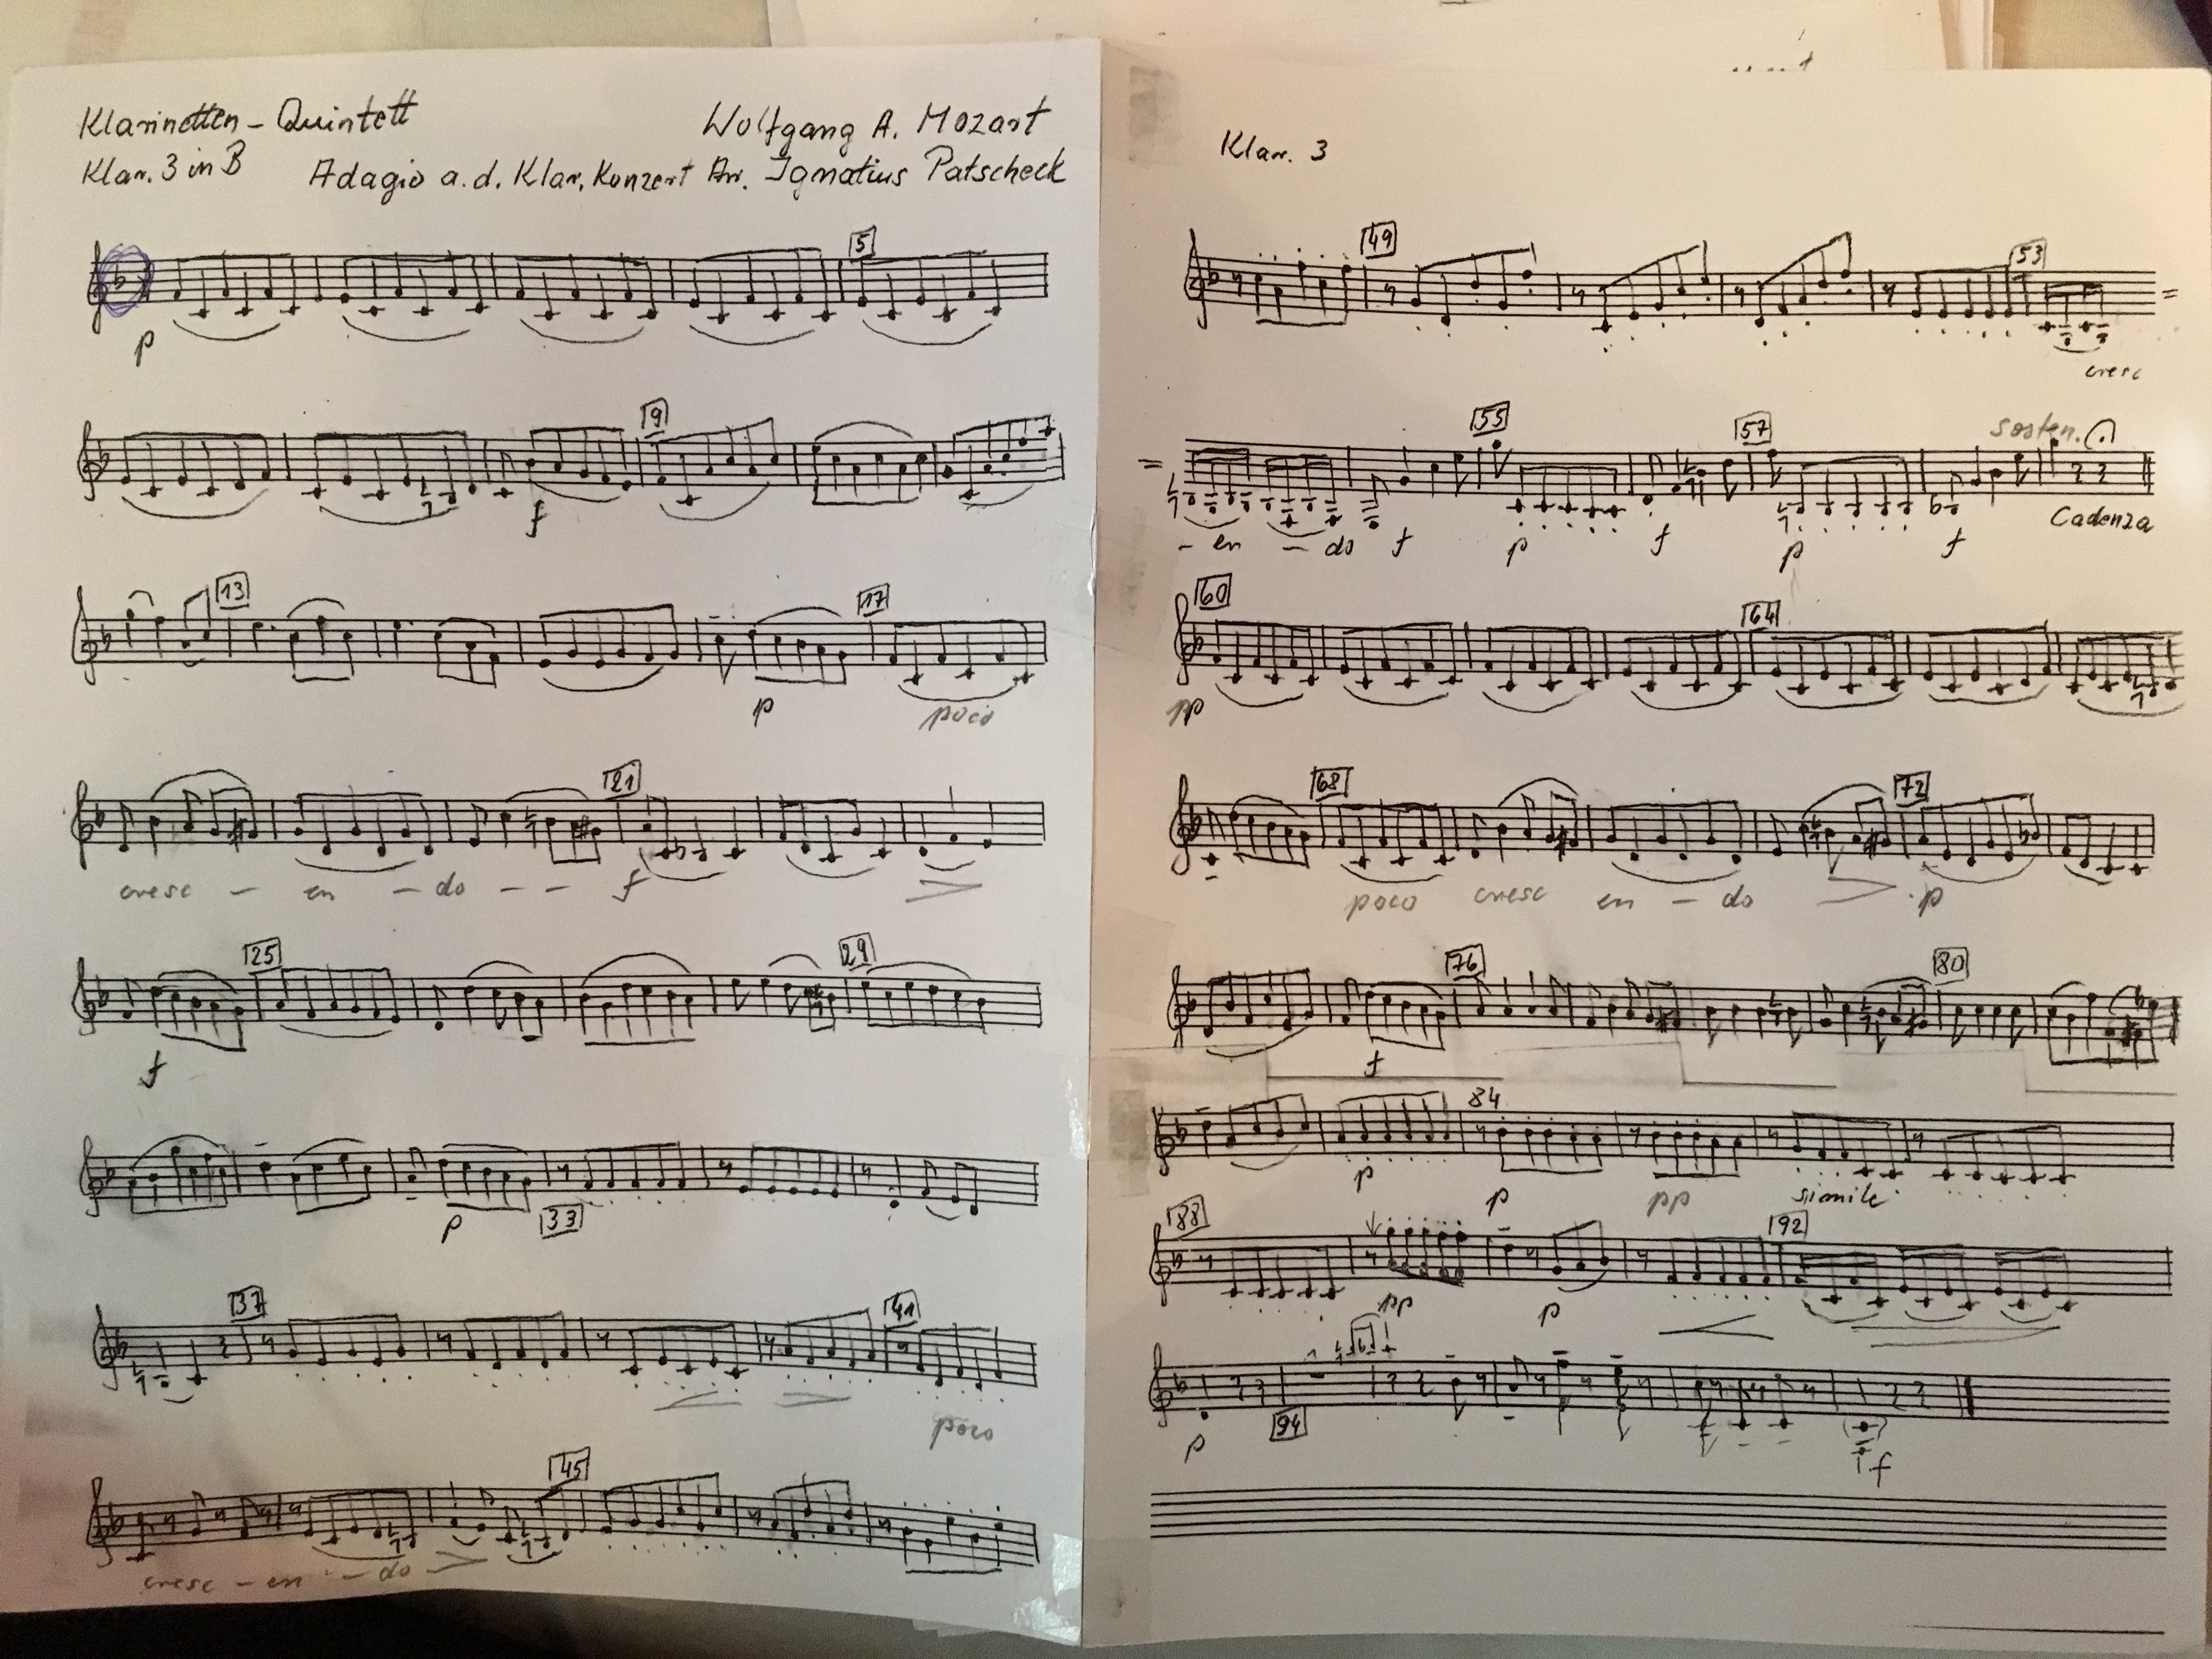 Klarinetten - Quintett Wolfgang A. Mozart
Klar. 3 in B Adagio a. d. Klar. Konzert Arr. Ignatius Patscheck
5
p
9
f
13 17
p poco
21
cresc - en - do - - f
25 29
f
p 33
37 41
poco
45
cresc - en - - do
Klar. 3
49 53
cresc
55 57 sosten.
- en - do f p f p f Cadenza
60 64
pp
68 72
poco cresc en - do p
76 80
f
84
p p pp simile
88 92
pp p
p 94 f